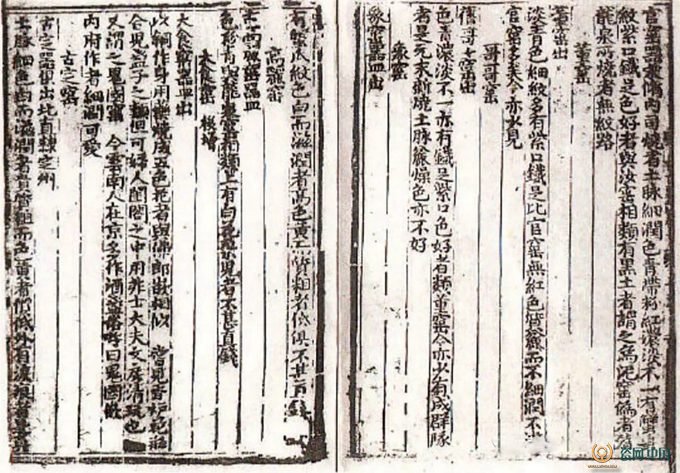 官窑器宋脩内司燒者土脉細潤色青帶粉紅濃淡不一有蟹爪
紋紫口鐵足色好者與汝窑相類有黑土者謂之烏泥窑偽者皆
龍泉所燒者無紋路
董窑
董窑出
淡青色細紋多有紫口鐵足比官窑無紅色質麄而不細潤不
官窑多矣今亦少見
哥哥窑
舊哥哥窑出
色青濃淡不一亦有鐵足紫口色好者類董窑今亦少有成群隊
者是元末新燒土脉麄燥色亦不好
象窑
象窑器皿出
有蟹爪紋色白而滋潤者高色黄而質粗者低俱不甚直錢
高麗窑
古高麗窑器皿
色粉青與龍泉窑相類上有白花朵兒者不甚直錢
大食窑 後增
大食窑器皿出
以銅作身用藥燒成五色花者與佛郎嵌相似嘗見香爐花瓶
合兒盞子之類但可婦人閨閣之中用非士大夫文房清玩也
又謂之鬼國窑今雲南人在京多作酒盞俗呼曰鬼國嵌
内府作者細潤可愛
古定窑
古定窑器出北直隸定州
土脉細色白而滋潤者貴質粗而色黄者價低外有淚痕者是真